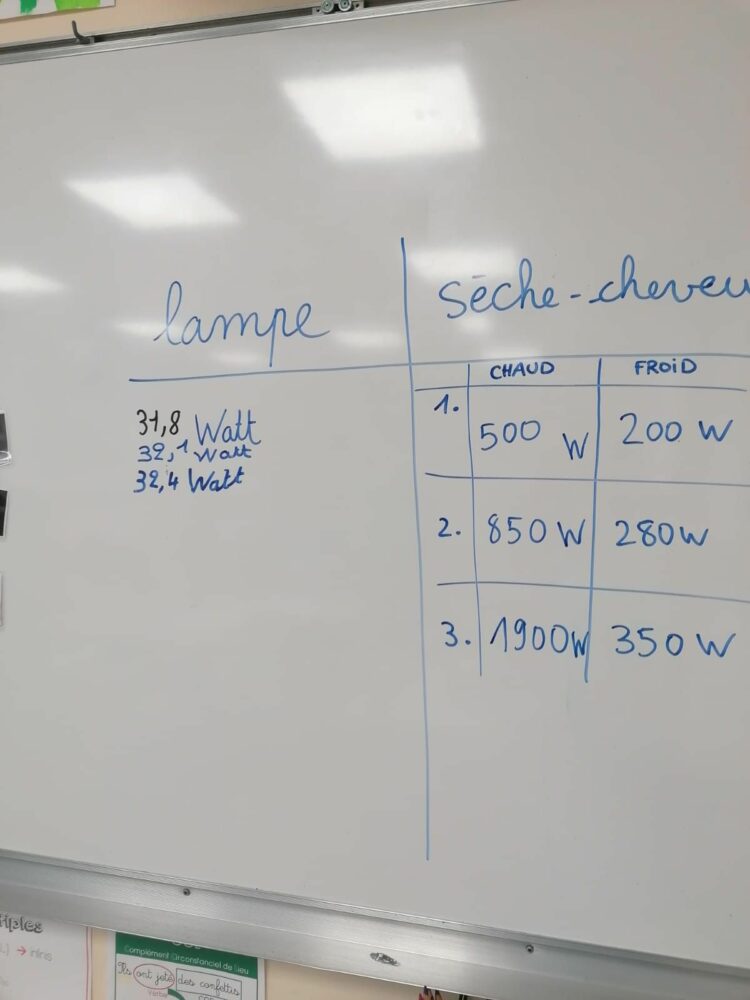 lampe
sèche-cheveu
CHAUD FROID
31,8 Watt
32,1 Watt
32,4 Watt
1. 500 W 200 W
2. 850 W 280 W
3. 1900 W 350 W
iples
→ infinis
Complément Circonstanciel de Lieu
Ils ont jeté des confettis
verbe